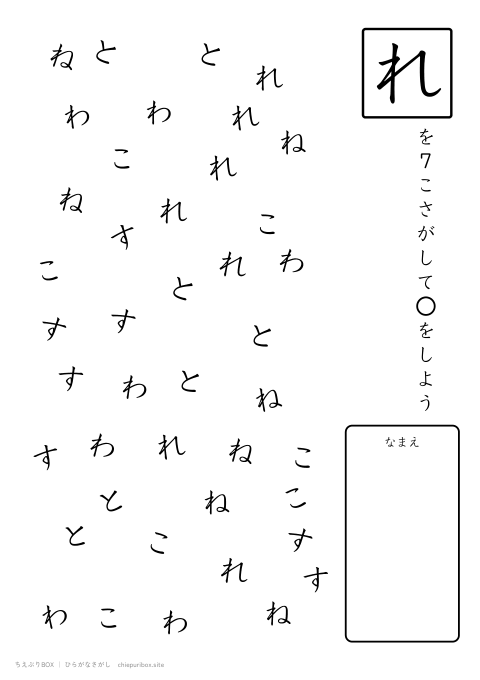 れ
を7こさがして○をしよう
なまえ
ね と と
れ
わ わ れ
ね
こ れ
ね れ
す こ
こ れ わ
と
す す と
す わ と ね
す わ れ ね こ
と ね こ
と こ す
れ す
わ こ わ ね
ちえぷりBOX | ひらがなさがし chiepuribox.site